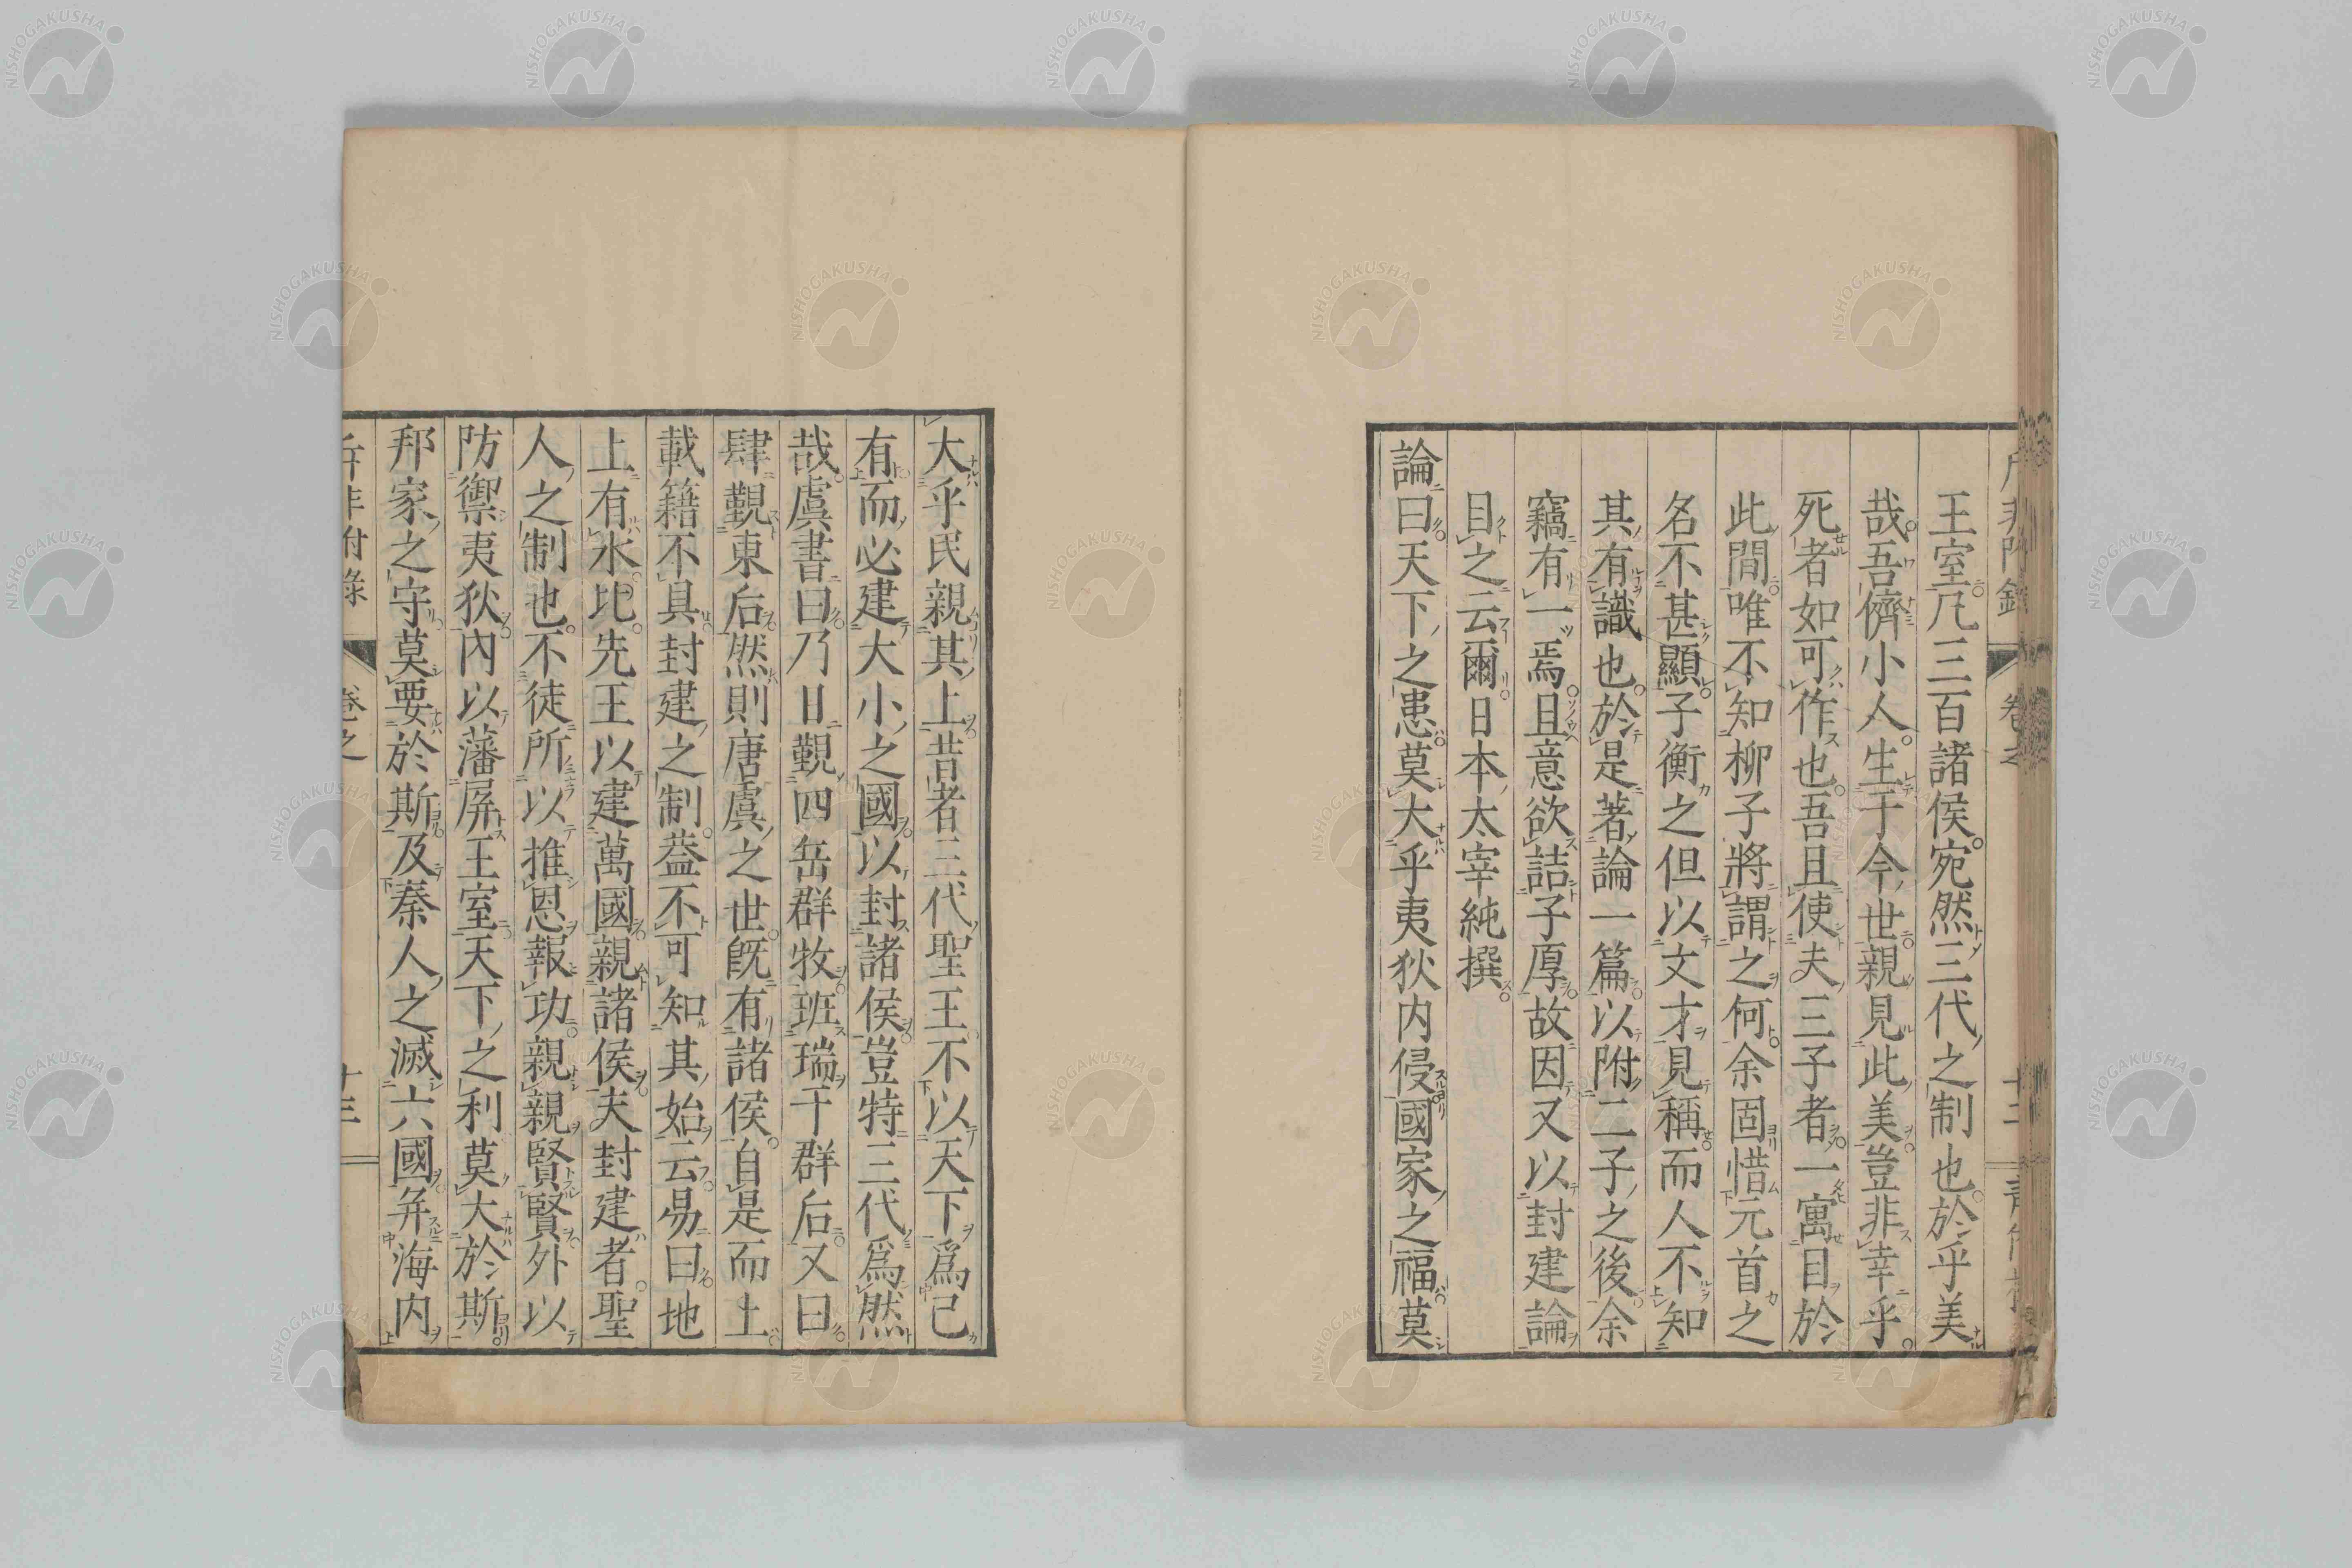 王室凢三百諸侯宛然三代之制也於乎美
哉吾儕小人生于今世親見此美豈非幸乎
死者如可作也吾且使夫三子者一寓目於
此間唯不知柳子將謂之何余固惜元首之
名不甚顯子衡之但以文才見稱而人不知
其有識也於是著論一篇以附二子之後余
竊有一焉且意欲詰子厚故因又以封建論
目之云爾日本太宰純撰
論曰天下之患莫大乎夷狄内侵國家之福莫
大乎民親其上昔者三代聖王不以天下爲己
有而必建大小之國以封諸侯豈特三代爲然
哉虞書曰乃日覲四岳群牧班瑞于群后又曰
肆覲東后然則唐虞之世既有諸侯自是而上
載籍不具封建之制葢不可知其始云易曰地
上有水比先王以建萬國親諸侯夫封建者聖
人之制也不徒所以推恩報功親親賢賢外以
防禦夷狄內以藩屏王室天下之利莫大於斯
邦家之守莫要於斯及秦人之滅六國并海内
斥非附錄 卷之 十三
NISHOGAKUSHA